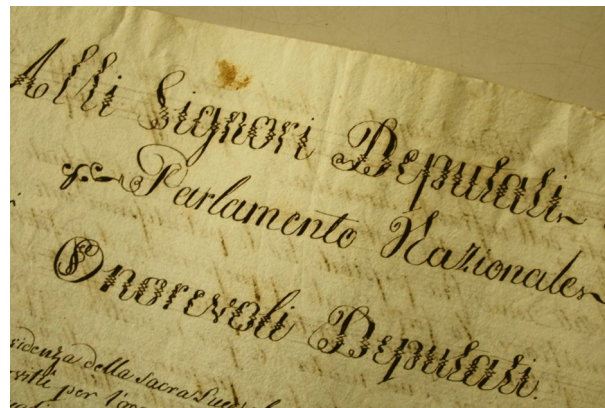 Alli Signori Deputati
Parlamento Nazionale
Onorevoli Deputati.
sidenza della Sacra
per l'